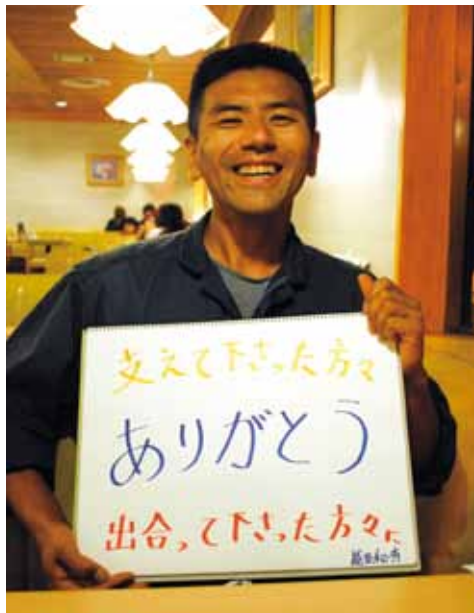 支えて下さった方々
ありがとう
出合って下さった方々に